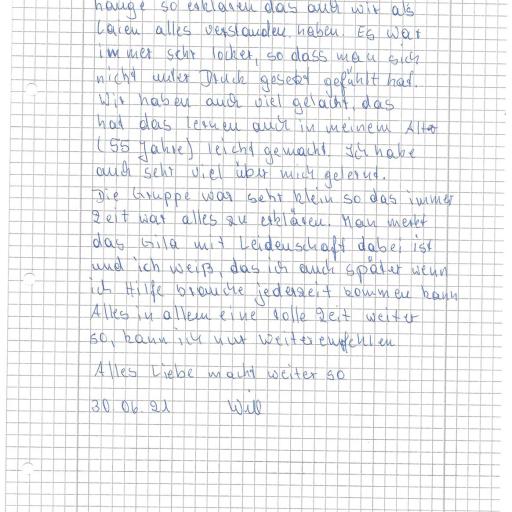 hänge so erklären das auch wir als
Laien alles verstanden haben. Es war
immer sehr locker, so dass man sich
nicht unter Druck gesetzt gefühlt hat.
Wir haben auch viel gelacht, das
hat das lernen auch in meinem Alter
(55 Jahre) leicht gemacht. Ich habe
auch sehr viel über mich gelernt.
Die Gruppe war sehr klein so das immer
Zeit war alles zu erklären. Man merkt
das Gila mit Leidenschaft dabei ist
und ich weiß, das ich auch später wenn
ich Hilfe brauche jederzeit kommen kann
Alles in allem eine tolle Zeit weiter
so, kann ich nur weiterempfehlen
Alles Liebe macht weiter so
30.06.21